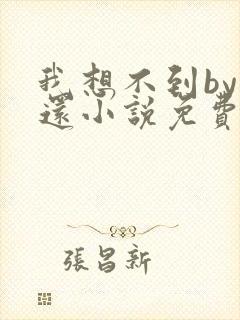 我想不到by
還小說免費
張昌新